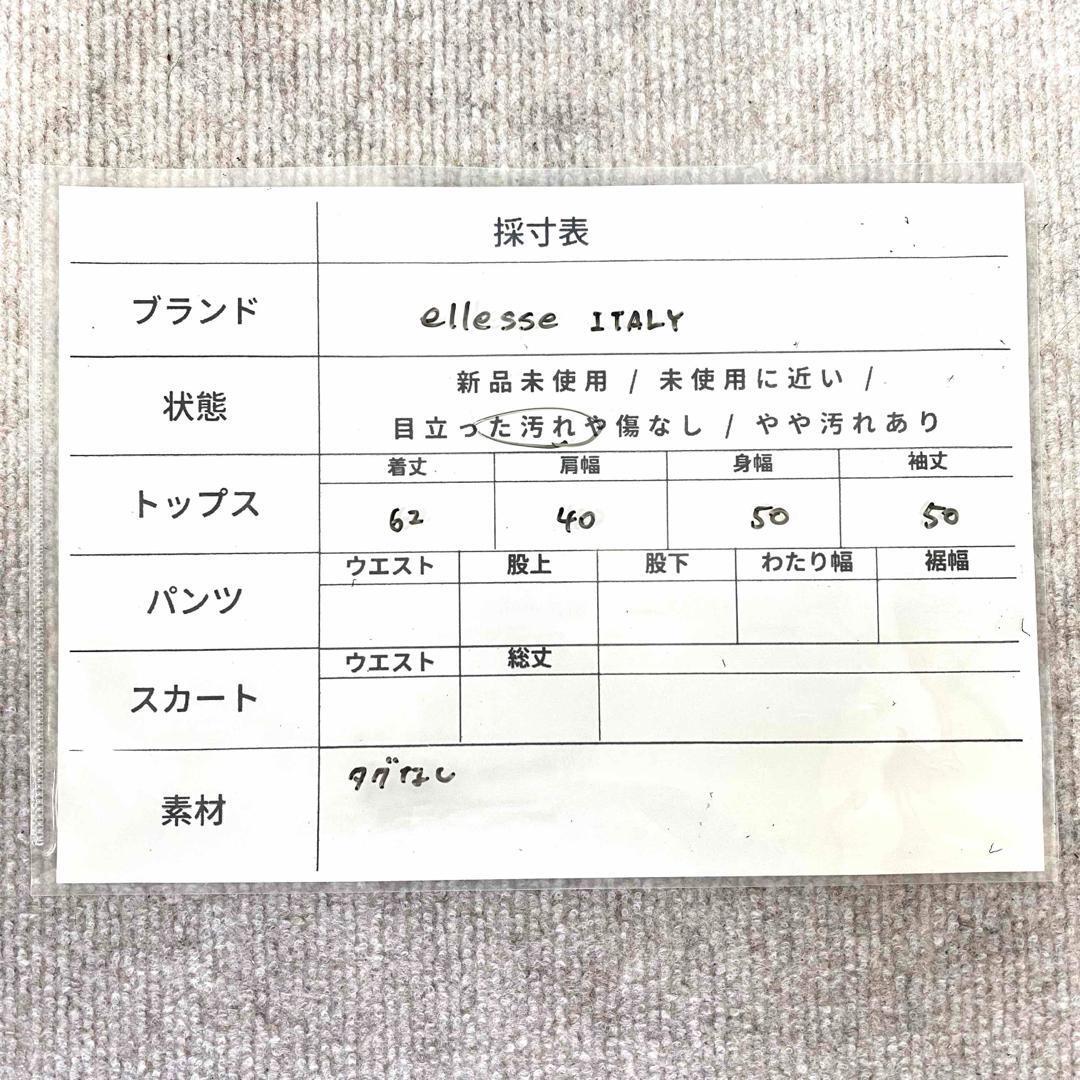 採寸表
ブランド
ellesse ITALY
状態
新品未使用 / 未使用に近い /
目立った汚れや傷なし / やや汚れあり
トップス
着丈 肩幅 身幅 袖丈
62 40 50 50
パンツ
ウエスト 股上 股下 わたり幅 裾幅
スカート
ウエスト 総丈
素材
タグなし